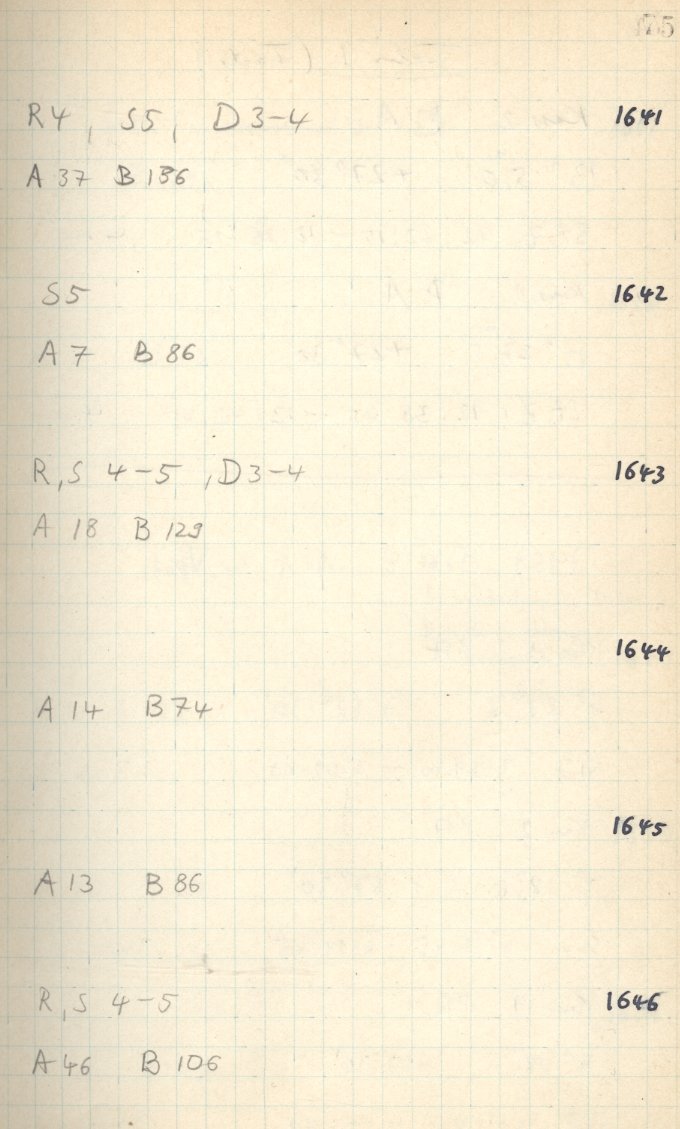 R4, S5, D3-4 1641
A 37 B 136
S5 1642
A 7 B 86
R,S 4-5, D3-4 1643
A 18 B 129
1644
A 14 B 74
1645
A 13 B 86
R,S 4-5 1646
A 46 B 106